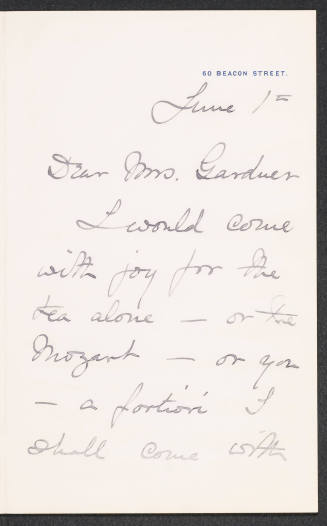 60 BEACON STREET.
June 1st
Dear Mrs. Gardner
I would come
with joy for the
tea alone — or the
Mozart — or you
— a fortiori I
shall come with